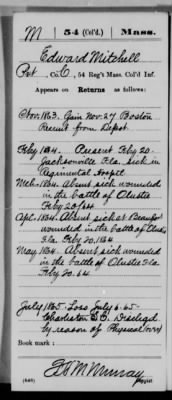 M | 54 (Col'd.) | Mass.
Edward Mitchell
Pvt, Co. C, 54 Reg't Mass. Col'd Inf.
Appears on Returns as follows:
Nov. 1863. Gain Nov. 27 Boston
Recruit from Depot.
Feby 1864. Present Feby 20-
Jacksonville Fla. sick in
Regimental Hospt
Mch. 1864. Absent sick wounded
in the battle of Olustee
Feby 20/64
Apl. 1864. Absent sick at Beaufort
wounded in the battle of Olustee
Fla Feby 20, 1864
May 1864. Absent sick wounded
in the battle of Olustee Fla.
Feby 20. 64
July 1865. Loss July 6. 65-
Charleston S.C. Dischgd
by reason of Physical
Book mark:
Murray
(648)